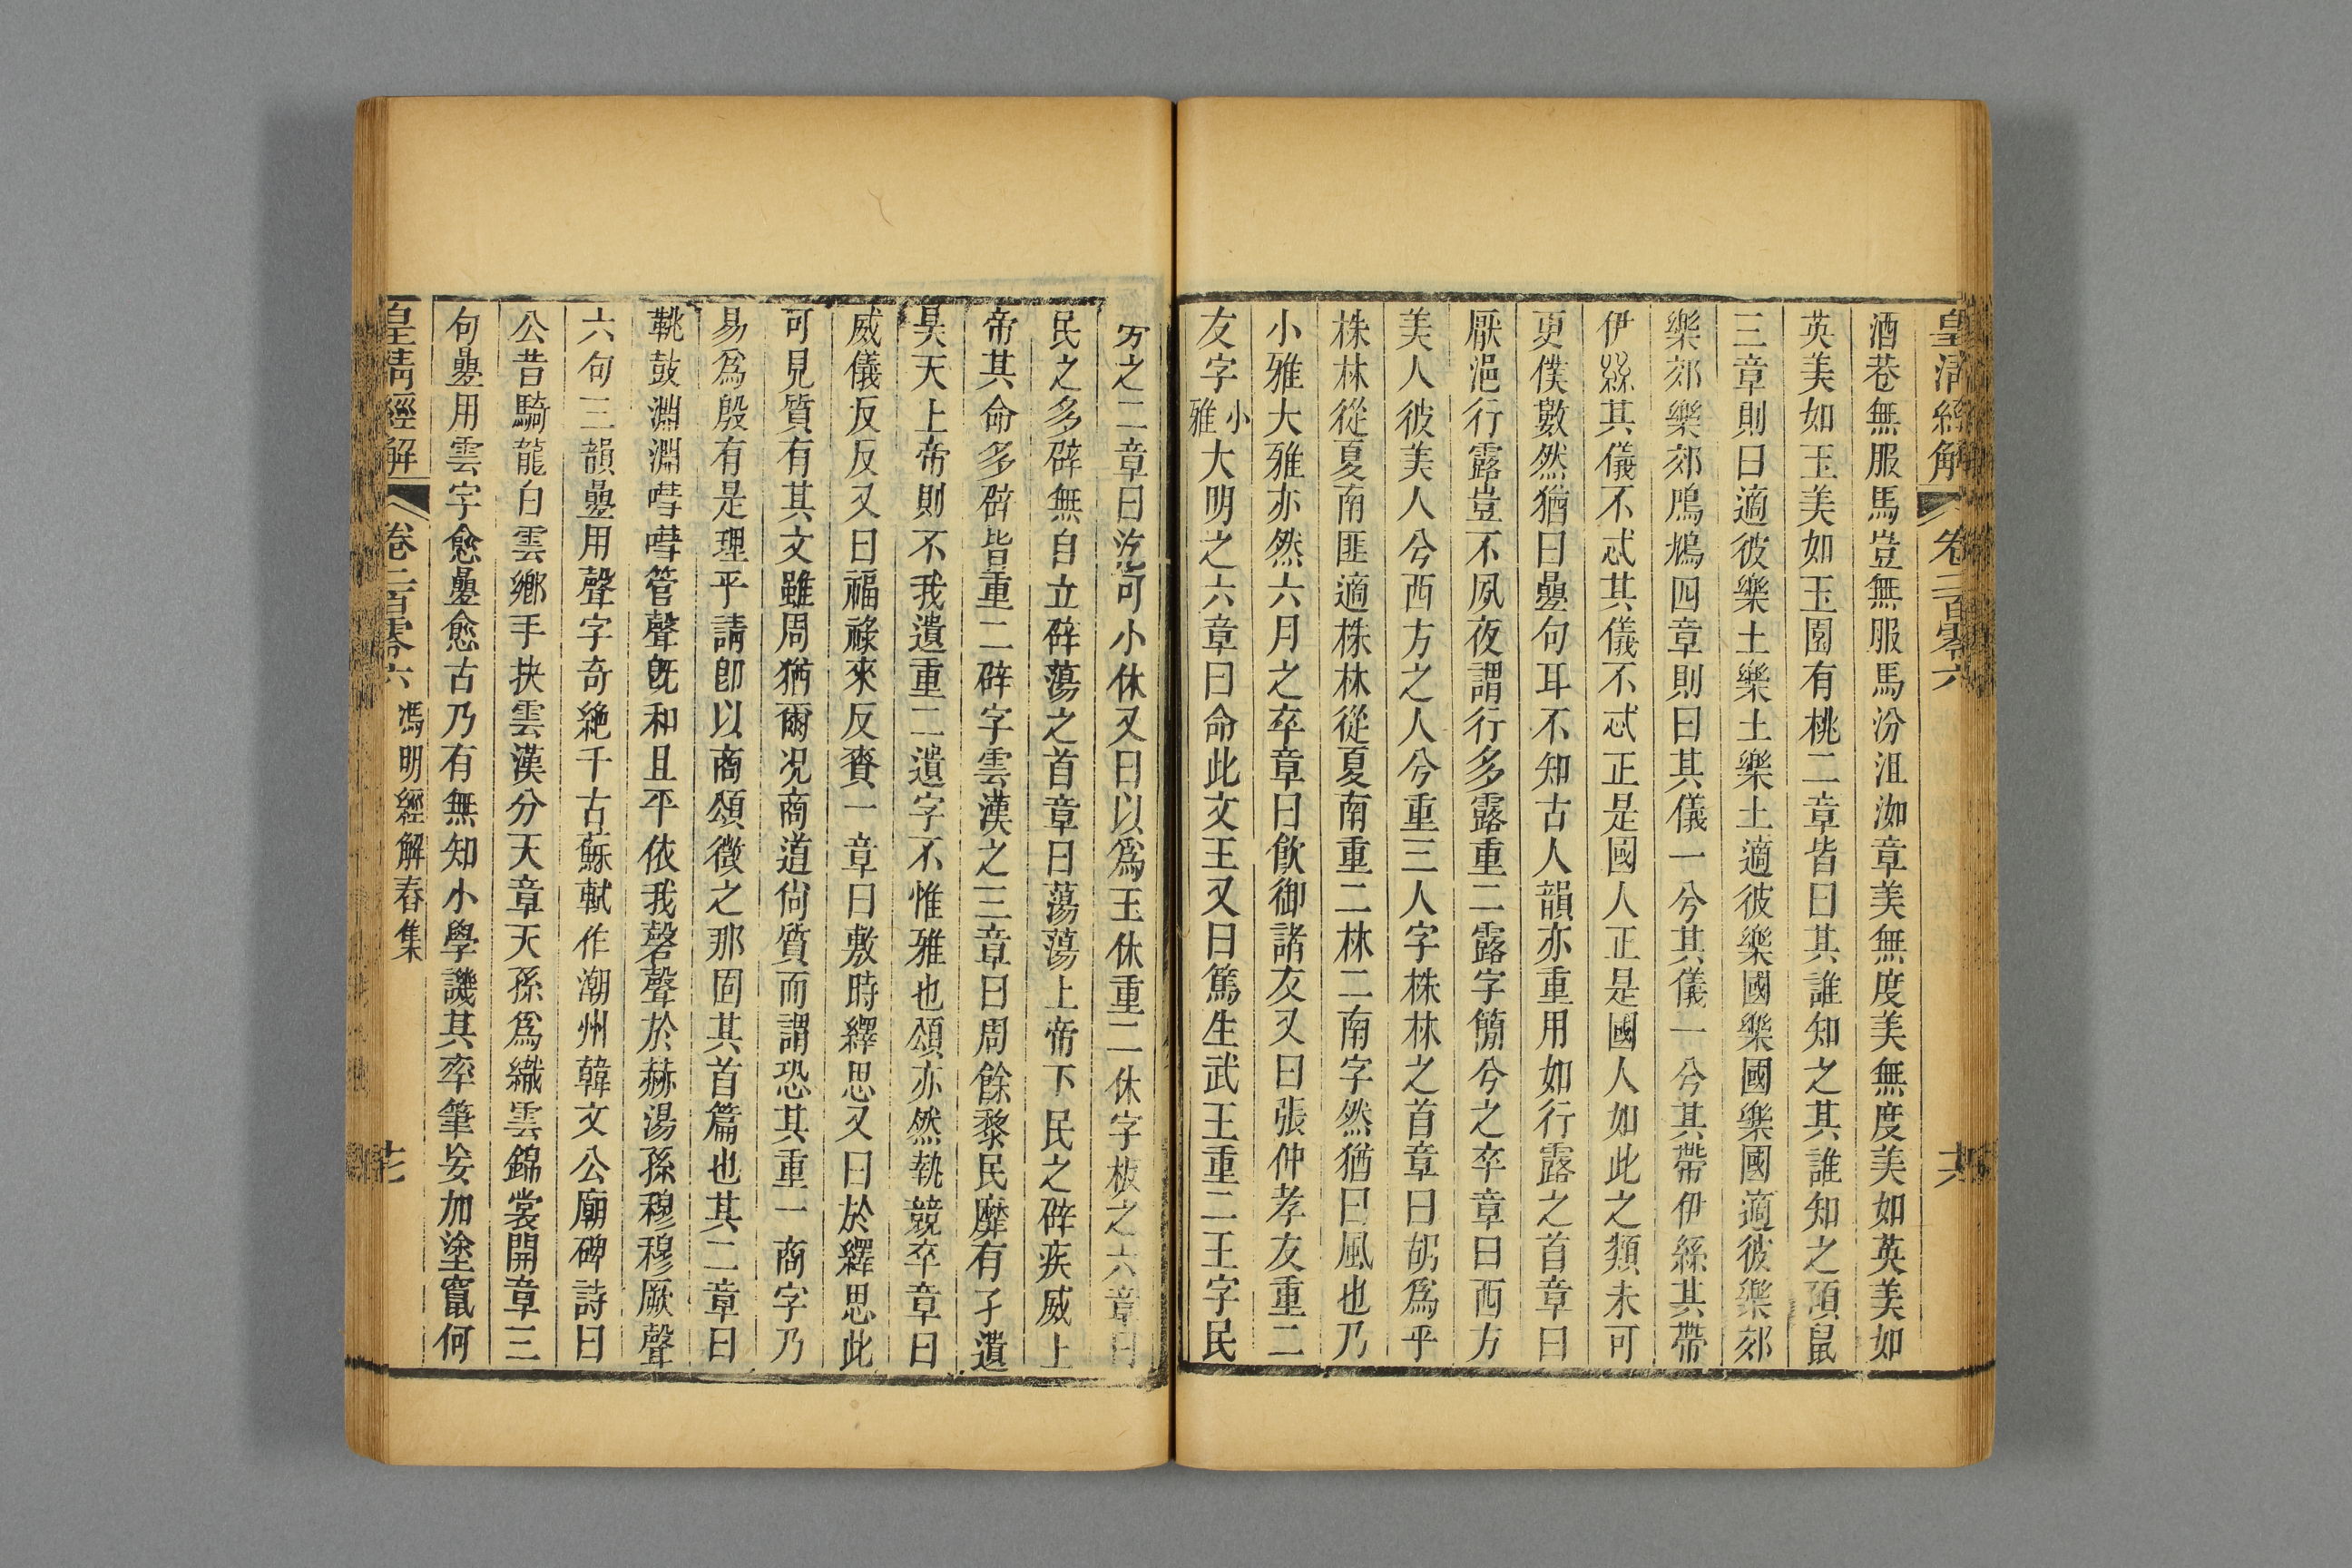 皇清經解 卷二百零六 六
酒巷無服馬豈無服馬汾沮洳章美無度美無度美如英美如
英美如玉美如玉園有桃二章皆曰其誰知之其誰知之碩鼠
三章則曰適彼樂土樂土樂土適彼樂國樂國樂國適彼樂郊
樂郊樂郊鳲鳩四章則曰其儀一兮其儀一兮其帶伊絲其帶
伊絲其儀不忒其儀不忒正是國人正是國人如此之類未可
更僕數然猶曰疊句耳不知古人韻亦重用如行露之首章曰
厭浥行露豈不夙夜謂行多露重二露字簡兮之卒章曰西方
美人彼美人兮西方之人兮重三人字株林之首章曰胡爲乎
株林從夏南匪適株林從夏南重二林二南字然猶曰風也乃
小雅大雅亦然六月之卒章曰飲御諸友又曰張仲孝友重二
友字小雅大明之六章曰命此文王又曰篤生武王重二王字民
勞之二章曰汔可小休又曰以爲王休重二休字板之六章曰
民之多辟無自立辟蕩之首章曰蕩蕩上帝下民之辟疾威上
帝其命多辟皆重二辟字雲漢之三章曰周餘黎民靡有孑遺
昊天上帝則不我遺重二遺字不惟雅也頌亦然執競卒章曰
威儀反反又曰福祿來反賚一章曰敷時繹思又曰於繹思此
可見質有其文雖周猶爾況商道尙質而謂恐其重一商字乃
易爲殷有是理乎請卽以商頌徵之那固其首篇也其二章曰
鞉鼓淵淵嘒嘒管聲旣和且平依我磬聲於赫湯孫穆穆厥聲
六句三韻疊用聲字奇絶千古蘇軾作潮州韓文公廟碑詩曰
公昔騎龍白雲鄕手抉雲漢分天章天孫爲織雲錦裳開章三
句疊用雲字愈疊愈古乃有無知小學譏其率筆妄加塗竄何
皇淸經解 卷二百零六 馮明經解舂集 七